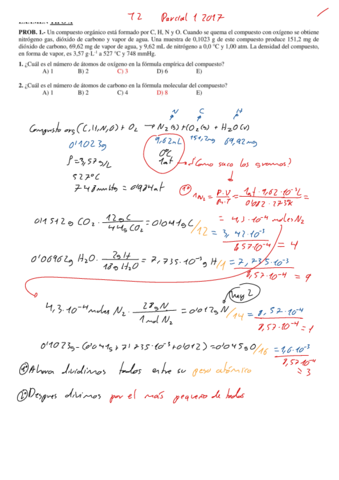 T2 Parcial 1 2017
PROB. 1.- Un compuesto orgánico está formado por C, H, N y O. Cuando se quema el compuesto con oxígeno se obtiene
nitrógeno gas, dióxido de carbono y vapor de agua. Una muestra de 0,1023 g de este compuesto produce 151,2 mg de
dióxido de carbono, 69,62 mg de vapor de agua, y 9,62 mL de nitrógeno a 0,0 °C y 1,00 atm. La densidad del compuesto,
en forma de vapor, es 3,57 g·L⁻¹ a 527 °C y 748 mmHg.
1. ¿Cuál es el número de átomos de oxígeno en la fórmula empírica del compuesto?
A) 1 B) 2 C) 3 D) 6 E)
2. ¿Cuál es el número de átomos de carbono en la fórmula molecular del compuesto?
A) 1 B) 2 C) 4 D) 8 E)
N C H
Compuesto org (C,H,N,O) + O₂ → N₂(g) + CO₂(g) + H₂O(v)
0'1023g 9,62mL 151,2mg 69,62mg
ρ=3,57g/L 0ºC
527ºC 1at → ¿Como saco los gramos?
748mmHg = 0'984at
n N₂ = P·V / R·T = 1at · 9,62·10⁻³L / 0'082 · 273K =
= 4,3·10⁻⁴ moles N₂
0'1512g CO₂ · 12gC / 44g CO₂ = 0'041g C /12 = 3,42·10⁻³ / 8,57·10⁻⁴ = 4
0'06962g H₂O · 2gH / 18g H₂O = 7,735·10⁻³g H /1 = 7,735·10⁻³ / 8,57·10⁻⁴ = 9
hay 2
4,3·10⁻⁴ moles N₂ · 28gN / 1mol N₂ = 0'012g N /14 = 8,57·10⁻⁴ / 8,57·10⁻⁴ = 1
0'1023g - (0'041g + 7'735·10⁻³ + 0'012) = 0'045g O /16 = 2,6·10⁻³ / 8,57·10⁻⁴ = 3
Ahora dividimos todos entre su peso atómico
Despues dividimos por el más pequeño de todos